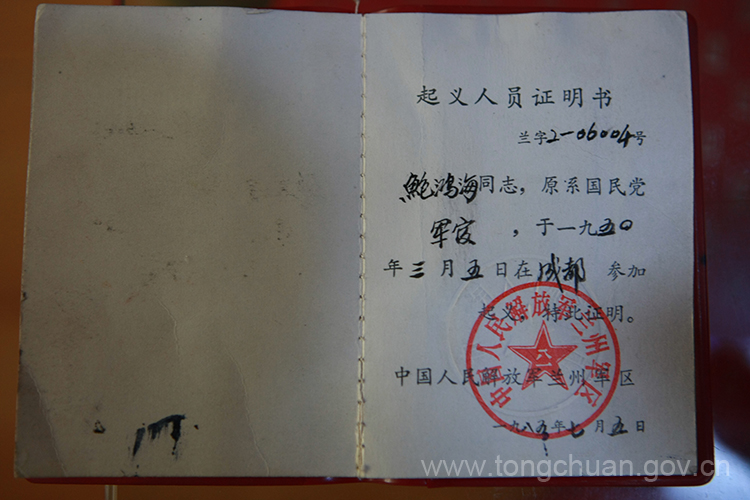 起义人员证明书
兰字2-06004号
鲍鸿海同志，原系国民党
军官，于一九五〇
年三月五日在成都 参加
起义，特此证明。
中国人民解放军兰州军区
中国人民解放军兰州军区
八一
一九八五年七月五日
www.tongchuan.gov.cn